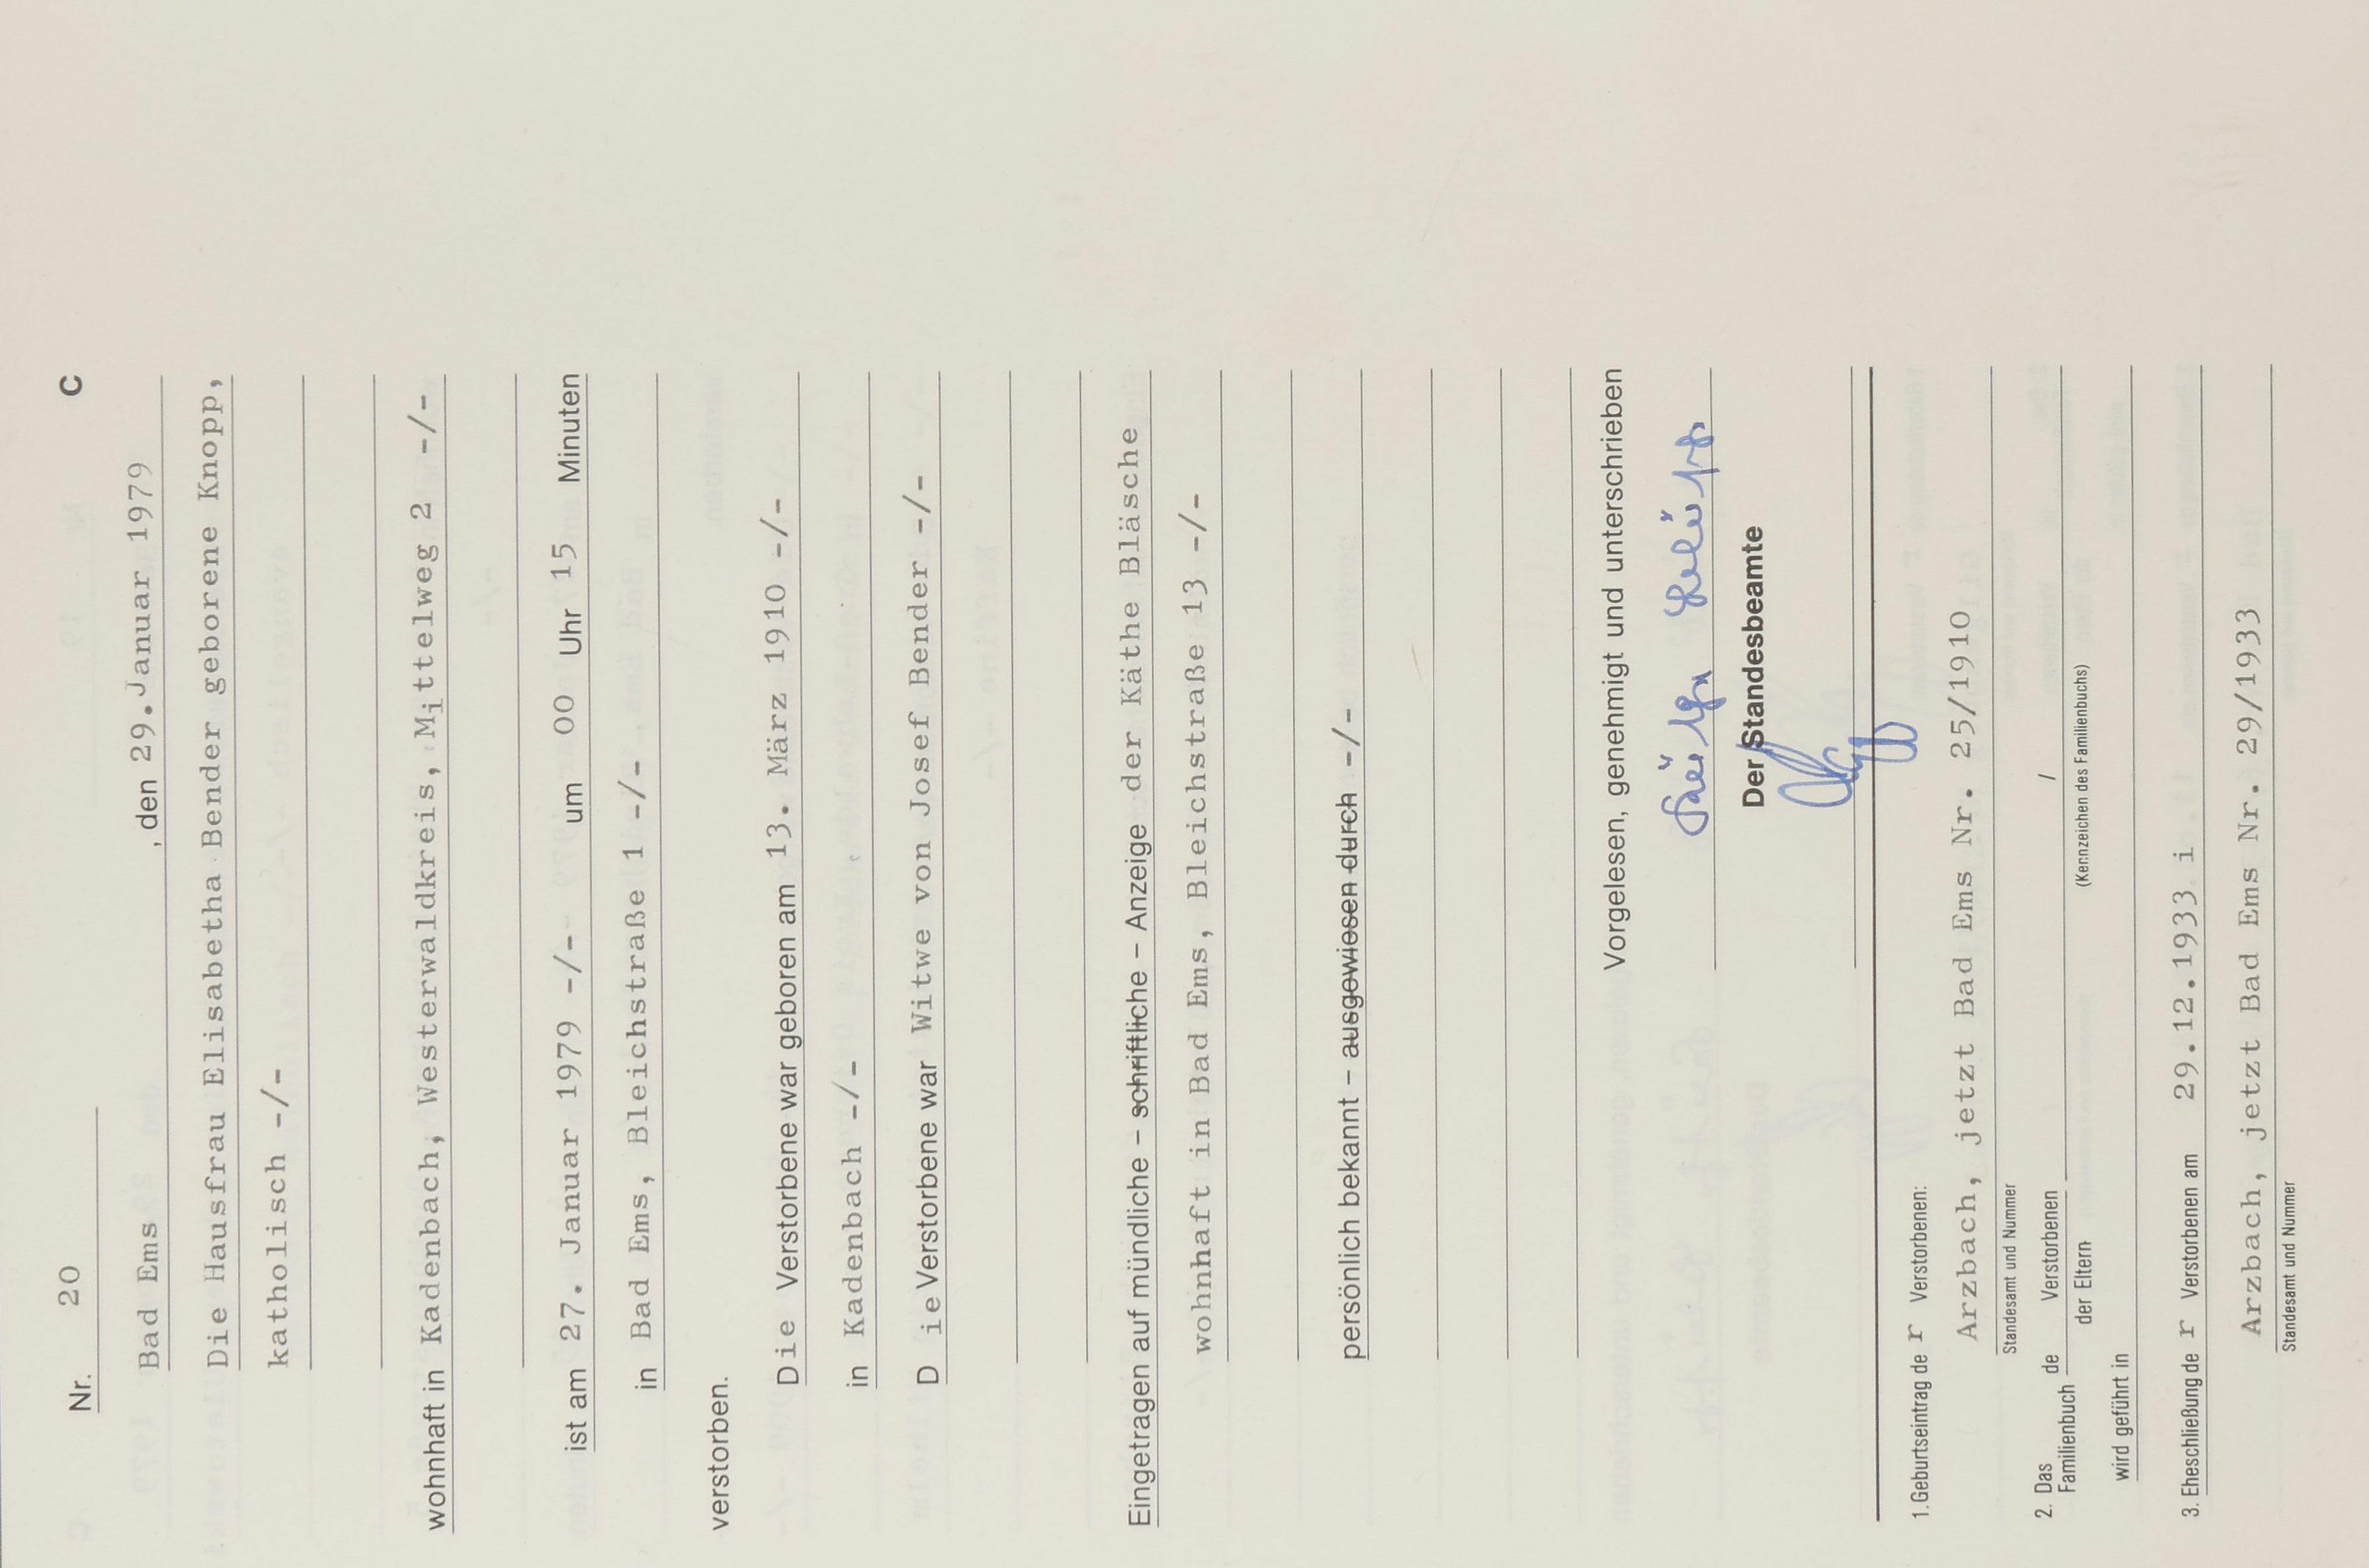 Nr. 20 C
Bad Ems , den 29.Januar 1979
Die Hausfrau Elisabetha Bender geborene Knopp,
katholisch -/-
wohnhaft in Kadenbach, Westerwaldkreis, Mittelweg 2 -/-
ist am 27. Januar 1979 -/- um 00 Uhr 15 Minuten
in Bad Ems, Bleichstraße 1 -/-
verstorben.
Die Verstorbene war geboren am 13. März 1910 -/-
in Kadenbach -/-
D ie Verstorbene war Witwe von Josef Bender -/-
Eingetragen auf mündliche – schriftliche – Anzeige der Käthe Bläsche
wohnhaft in Bad Ems, Bleichstraße 13 -/-
persönlich bekannt – ausgewiesen durch -/-
Vorgelesen, genehmigt und unterschrieben
Der Standesbeamte
1. Geburtseintrag de r Verstorbenen:
Arzbach, jetzt Bad Ems Nr. 25/1910
Standesamt und Nummer
2. Das Familienbuch de Verstorbenen /
der Eltern (Kennzeichen des Familienbuchs)
wird geführt in
3. Eheschließung de r Verstorbenen am 29.12.1933 i
Arzbach, jetzt Bad Ems Nr. 29/1933
Standesamt und Nummer